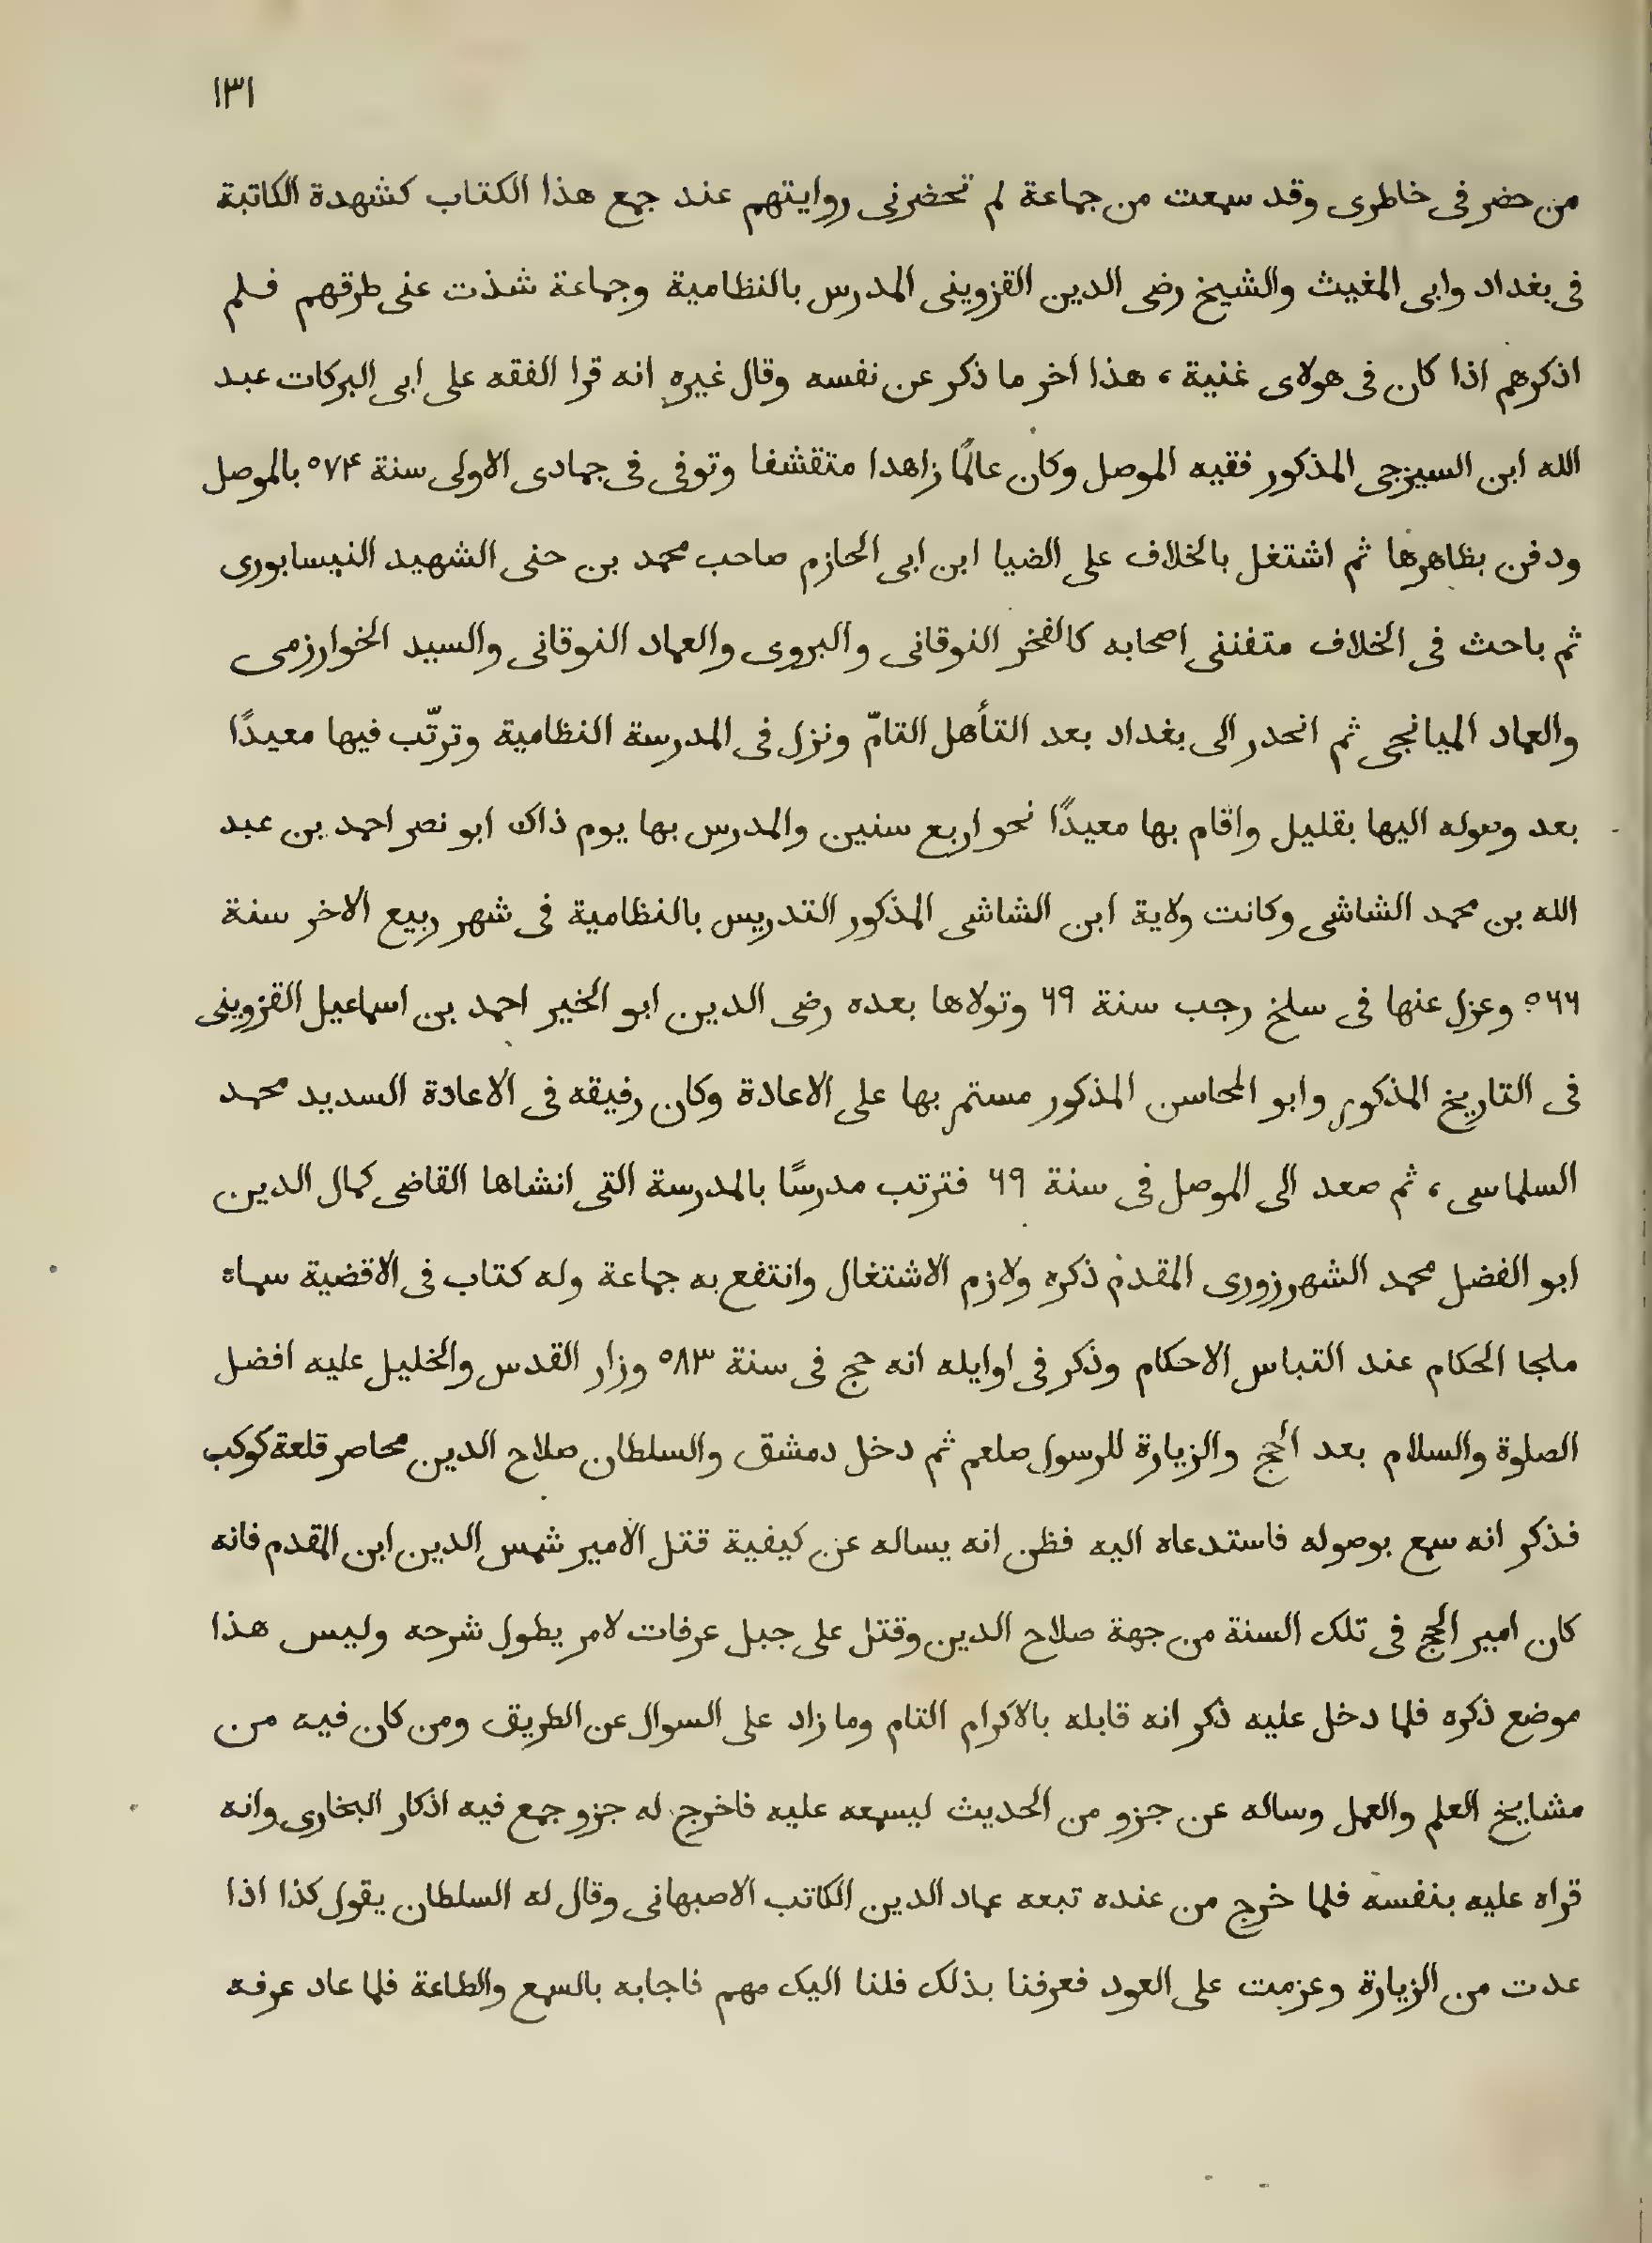 ١٣١
من حضر فى خاطرى وقد سمعت من جماعة لم تحضرنى روايتهم عند جمع هذا الكتاب كشهدة الكاتبة
فى بغداد وابى المغيث والشيخ رضى الدين القزوينى المدرس بالنظامية وجماعة شذت عنى طرقهم فلم
اذكرهم اذا كان فى هولاى غنية ، هذا اخر ما ذكر عن نفسه وقال غيره انه قرا الفقه على ابى البركات عبد
الله ابن السيزجى المذكور فقيه الموصل وكان عالمًا زاهدا متقشفا وتوفى فى جمادى الاولى سنة ٥٧۴ بالموصل
ودفن بظاهرها ثم اشتغل بالخلاف على الضيا ابن ابى الحازم صاحب محمد بن حنى الشهيد النيسابورى
ثم باحث فى الخلاف متفننى اصحابه كالفخر النوقانى والبروى والعماد النوقانى والسيد الخوارزمى
والعماد الميانجى ثم انحدر الى بغداد بعد التأهل التامّ ونزل فى المدرسة النظامية وترتّب فيها معيدًا
بعد وصوله اليها بقليل واقام بها معيدًا نحو اربع سنين والمدرس بها يوم ذاك ابو نصر احمد بن عبد
الله بن محمد الشاشى وكانت ولاية ابن الشاشى المذكور التدريس بالنظامية فى شهر ربيع الاخر سنة
٥٦٦ وعزل عنها فى سلخ رجب سنة ٦٩ وتولاها بعده رضى الدين ابو الخير احمد بن اسماعيل القزوينى
فى التاريخ المذكور وابو المحاسن المذكور مستمر بها على الاعادة وكان رفيقه فى الاعادة السديد محمد
السلماسى ، ثم صعد الى الموصل فى سنة ٦٩ فترتب مدرسًا بالمدرسة التى انشاها القاضى كمال الدين
ابو الفضل محمد الشهرزورى المقدم ذكره ولازم الاشتغال وانتفع به جماعة وله كتاب فى الاقضية سماه
ملجا الحكام عند التباس الاحكام وذكر فى اوايله انه حج فى سنة ٥٨٣ وزار القدس والخليل عليه افضل
الصلوة والسلام بعد الحج والزيارة للرسول صلعم ثم دخل دمشق والسلطان صلاح الدين محاصر قلعة كوكب
فذكر انه سمع بوصوله فاستدعاه اليه فظن انه يساله عن كيفية قتل الامير شمس الدين ابن المقدم فانه
كان امير الحج فى تلك السنة من جهة صلاح الدين وقتل على جبل عرفات لامر يطول شرحه وليس هذا
موضع ذكره فلما دخل عليه ذكر انه قابله بالاكرام التام وما زاد على السوال عن الطريق ومن كان فيه من
مشايخ العلم والعمل وساله عن جزو من الحديث ليسمعه عليه فاخرج له جزو جمع فيه اذكار البخارى وانه
قراه عليه بنفسه فلما خرج من عنده تبعه عماد الدين الكاتب الاصبهانى وقال له السلطان يقول كذا اذا
عدت من الزيارة وعزمت على العود فعرفنا بذلك فلنا اليك مهم فاجابه بالسمع والطاعة فلما عاد عرفه